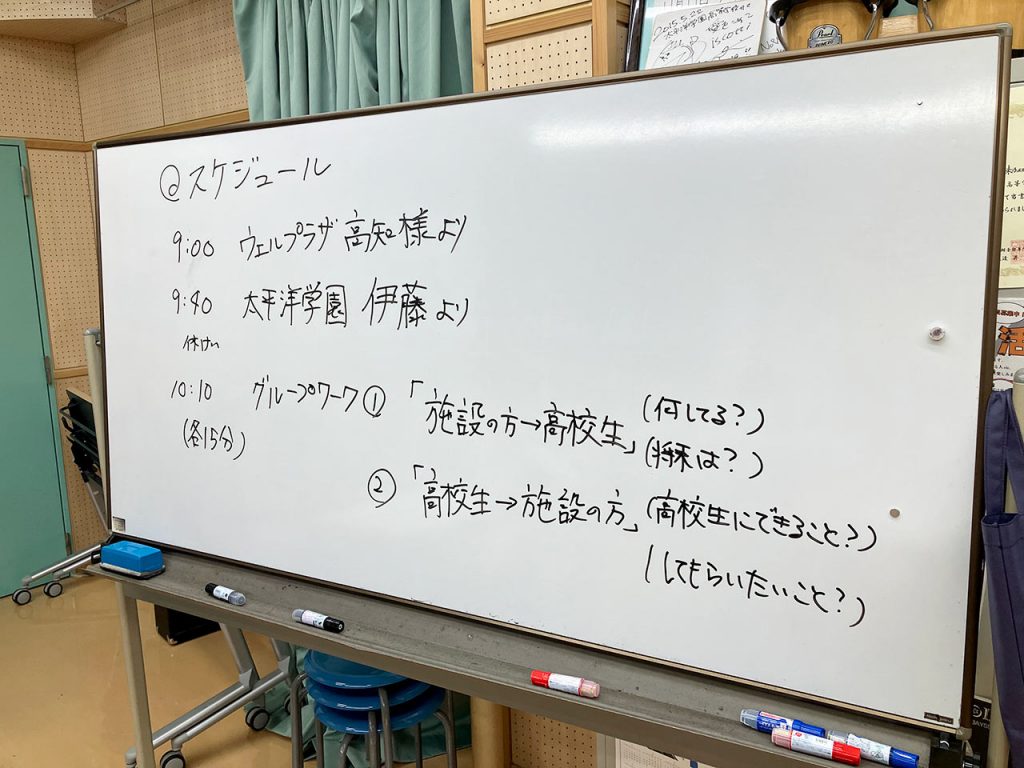 @スケジュール
9:00 ウェルプラザ高知様より
9:40 太平洋学園 伊藤より
休けい
10:10 グループワーク① 「施設の方→高校生」(何してる?)
(将来は?)
(各15分)
② 「高校生→施設の方」(高校生にできること?)
(してもらいたいこと?)
Pearl
2015.5.22
活